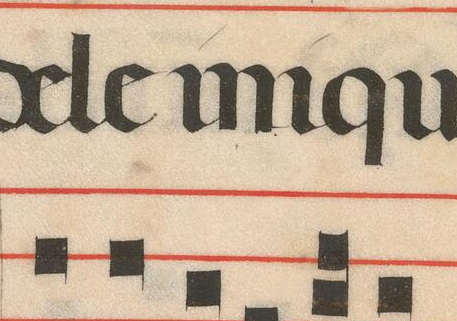 dele iniqu